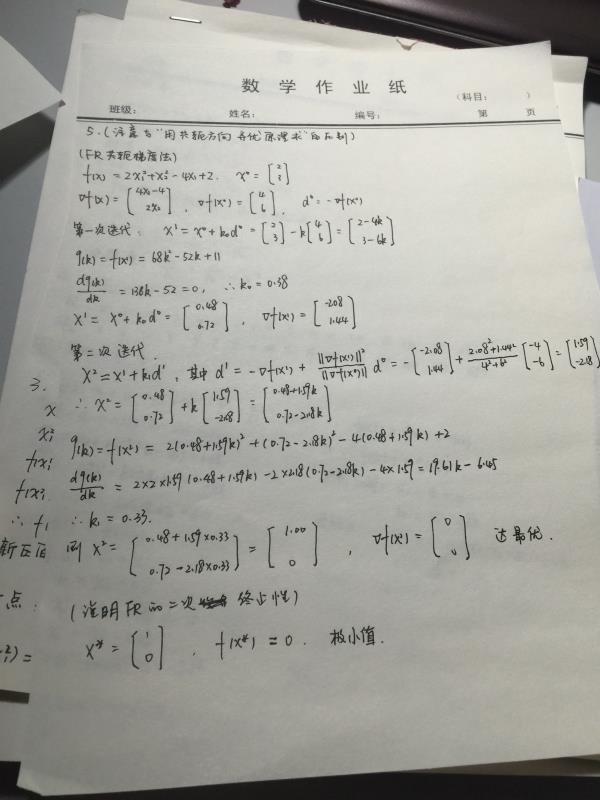 数学作业纸
（科目： ）
班级： 姓名： 编号： 第 页
5.(注意与"用共轭方向寻优原理求"的区别)
(FR共轭梯度法)
f(x) = 2x₁²+x₂²-4x₁+2. x⁰= [2 3]
∇f(x) = [4x₁-4 2x₂], ∇f(x⁰) = [4 6], d⁰ = -∇f(x⁰)
第一次迭代: x¹ = x⁰+k₀d⁰ = [2 3] - k[4 6] = [2-4k 3-6k]
g(k) = f(x¹) = 68k²-52k+11
dg(k)/dk = 136k-52=0, ∴k₀=0.38
x¹ = x⁰+k₀d⁰ = [0.48 0.72], ∇f(x¹) = [-2.08 1.44]
第二次迭代.
x²=x¹+k₁d¹, 其中d¹ = -∇f(x¹) + ||∇f(x¹)||²/||∇f(x⁰)|| d⁰ = -[-2.08 1.44] + (2.08²+1.44²)/(4²+6²) [-4 -6] = [1.59 -2.18]
∴ x² = [0.48 0.72] + k[1.59 -2.18] = [0.48+1.59k 0.72-2.18k]
g(k) = f(x²) = 2(0.48+1.59k)²+(0.72-2.18k)²-4(0.48+1.59k)+2
dg(k)/dk = 2×2×1.59(0.48+1.59k)-2×2.18(0.72-2.18k)-4×1.59=19.61k-6.45
∴k₁=0.33.
则 x² = [0.48+1.59×0.33 0.72-2.18×0.33] = [1.00 0], ∇f(x²) = [0 0] 达最优.
(证明FR的二次终止性)
x* = [1 0], f(x*) = 0. 极小值.
3.
x
x₂²
f(x₁
f(x₂
∴ f₁
点: